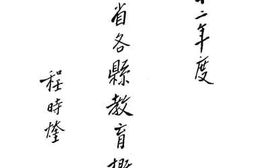 二年度
省各縣教育
程時煃